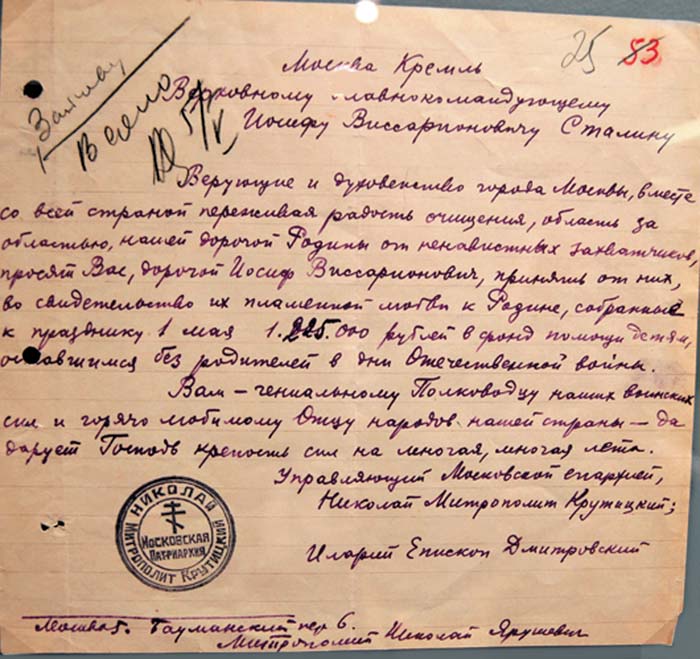 25 53
Москва Кремль
Верховному главнокомандующему
Иосифу Виссарионовичу Сталину
Верующие и духовенство города Москвы, вместе
со всей страной переживая радость очищения, область за
областью, нашей дорогой Родины от ненавистных захватчиков,
просят Вас, дорогой Иосиф Виссарионович, принять от них,
во свидетельство их пламенной любви к Родине, собранные
к празднику 1 мая 1.225.000 рублей в фонд помощи детям,
оставшимся без родителей в дни Отечественной войны.
Вам – гениальному Полководцу наших воинских
сил и горячо любимому Отцу народов нашей страны – да
дарует Господь крепость сил на многая, многая лета.
Управляющий Московской епархией,
Николай Митрополит Крутицкий;
НИКОЛАЙ
МИТРОПОЛИТ КРУТИЦКИЙ
МОСКОВСКАЯ
ПАТРИАРХИЯ
Иларий Епископ Дмитровский
Москва 5. Бауманский пер 6.
Митрополит Николай Ярушевич